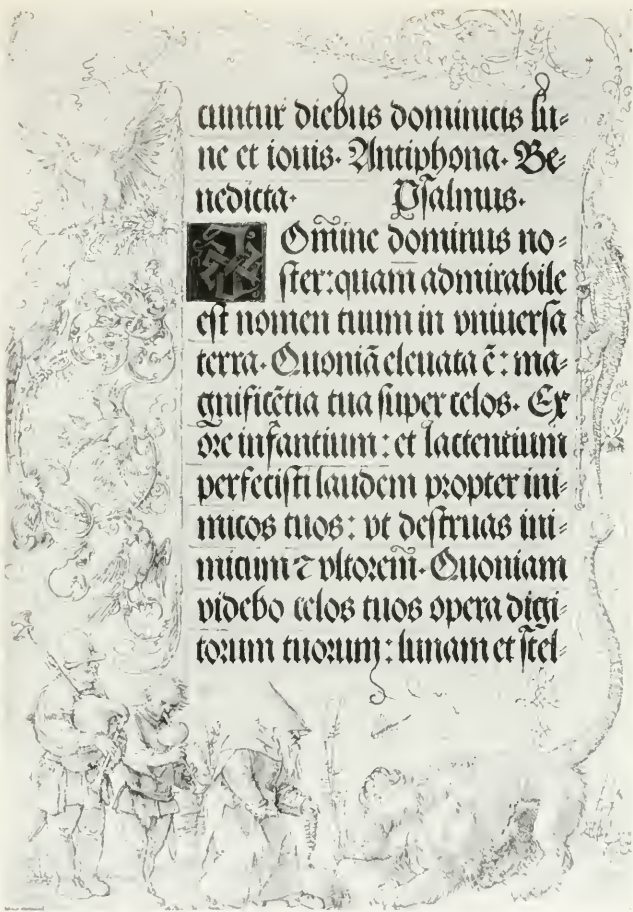 cuntur diebus dominicis lu⸗
ne et iouis. Antiphona. Be⸗
nedicta. Psalmus.
DOmine dominus no⸗
ster: quam admirabile
est nomen tuum in vniuersa
terra. Quoniã eleuata ẽ: ma⸗
gnificẽtia tua super celos. Ex
ore infantium: et lactentium
perfecisti laudem propter ini⸗
micos tuos: vt destruas ini⸗
micum ⁊ vltorem. Quoniam
videbo celos tuos opera digi⸗
torum tuorum: lunam et stel⸗